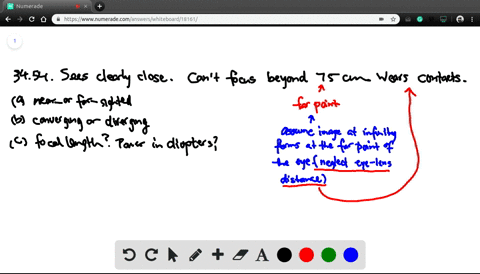 Numerade
https://www.numerade.com/answers/whiteboard/18161/
1
34.54. Sees clearly close. Can't focus beyond 75 cm Wears contacts.
(a) near or far sighted
(b) converging or diverging
(c) focal length? Power in diopters?
far point
assume image at infinity
forms at the far point of
the eye (neglect eye-lens
distance)
A